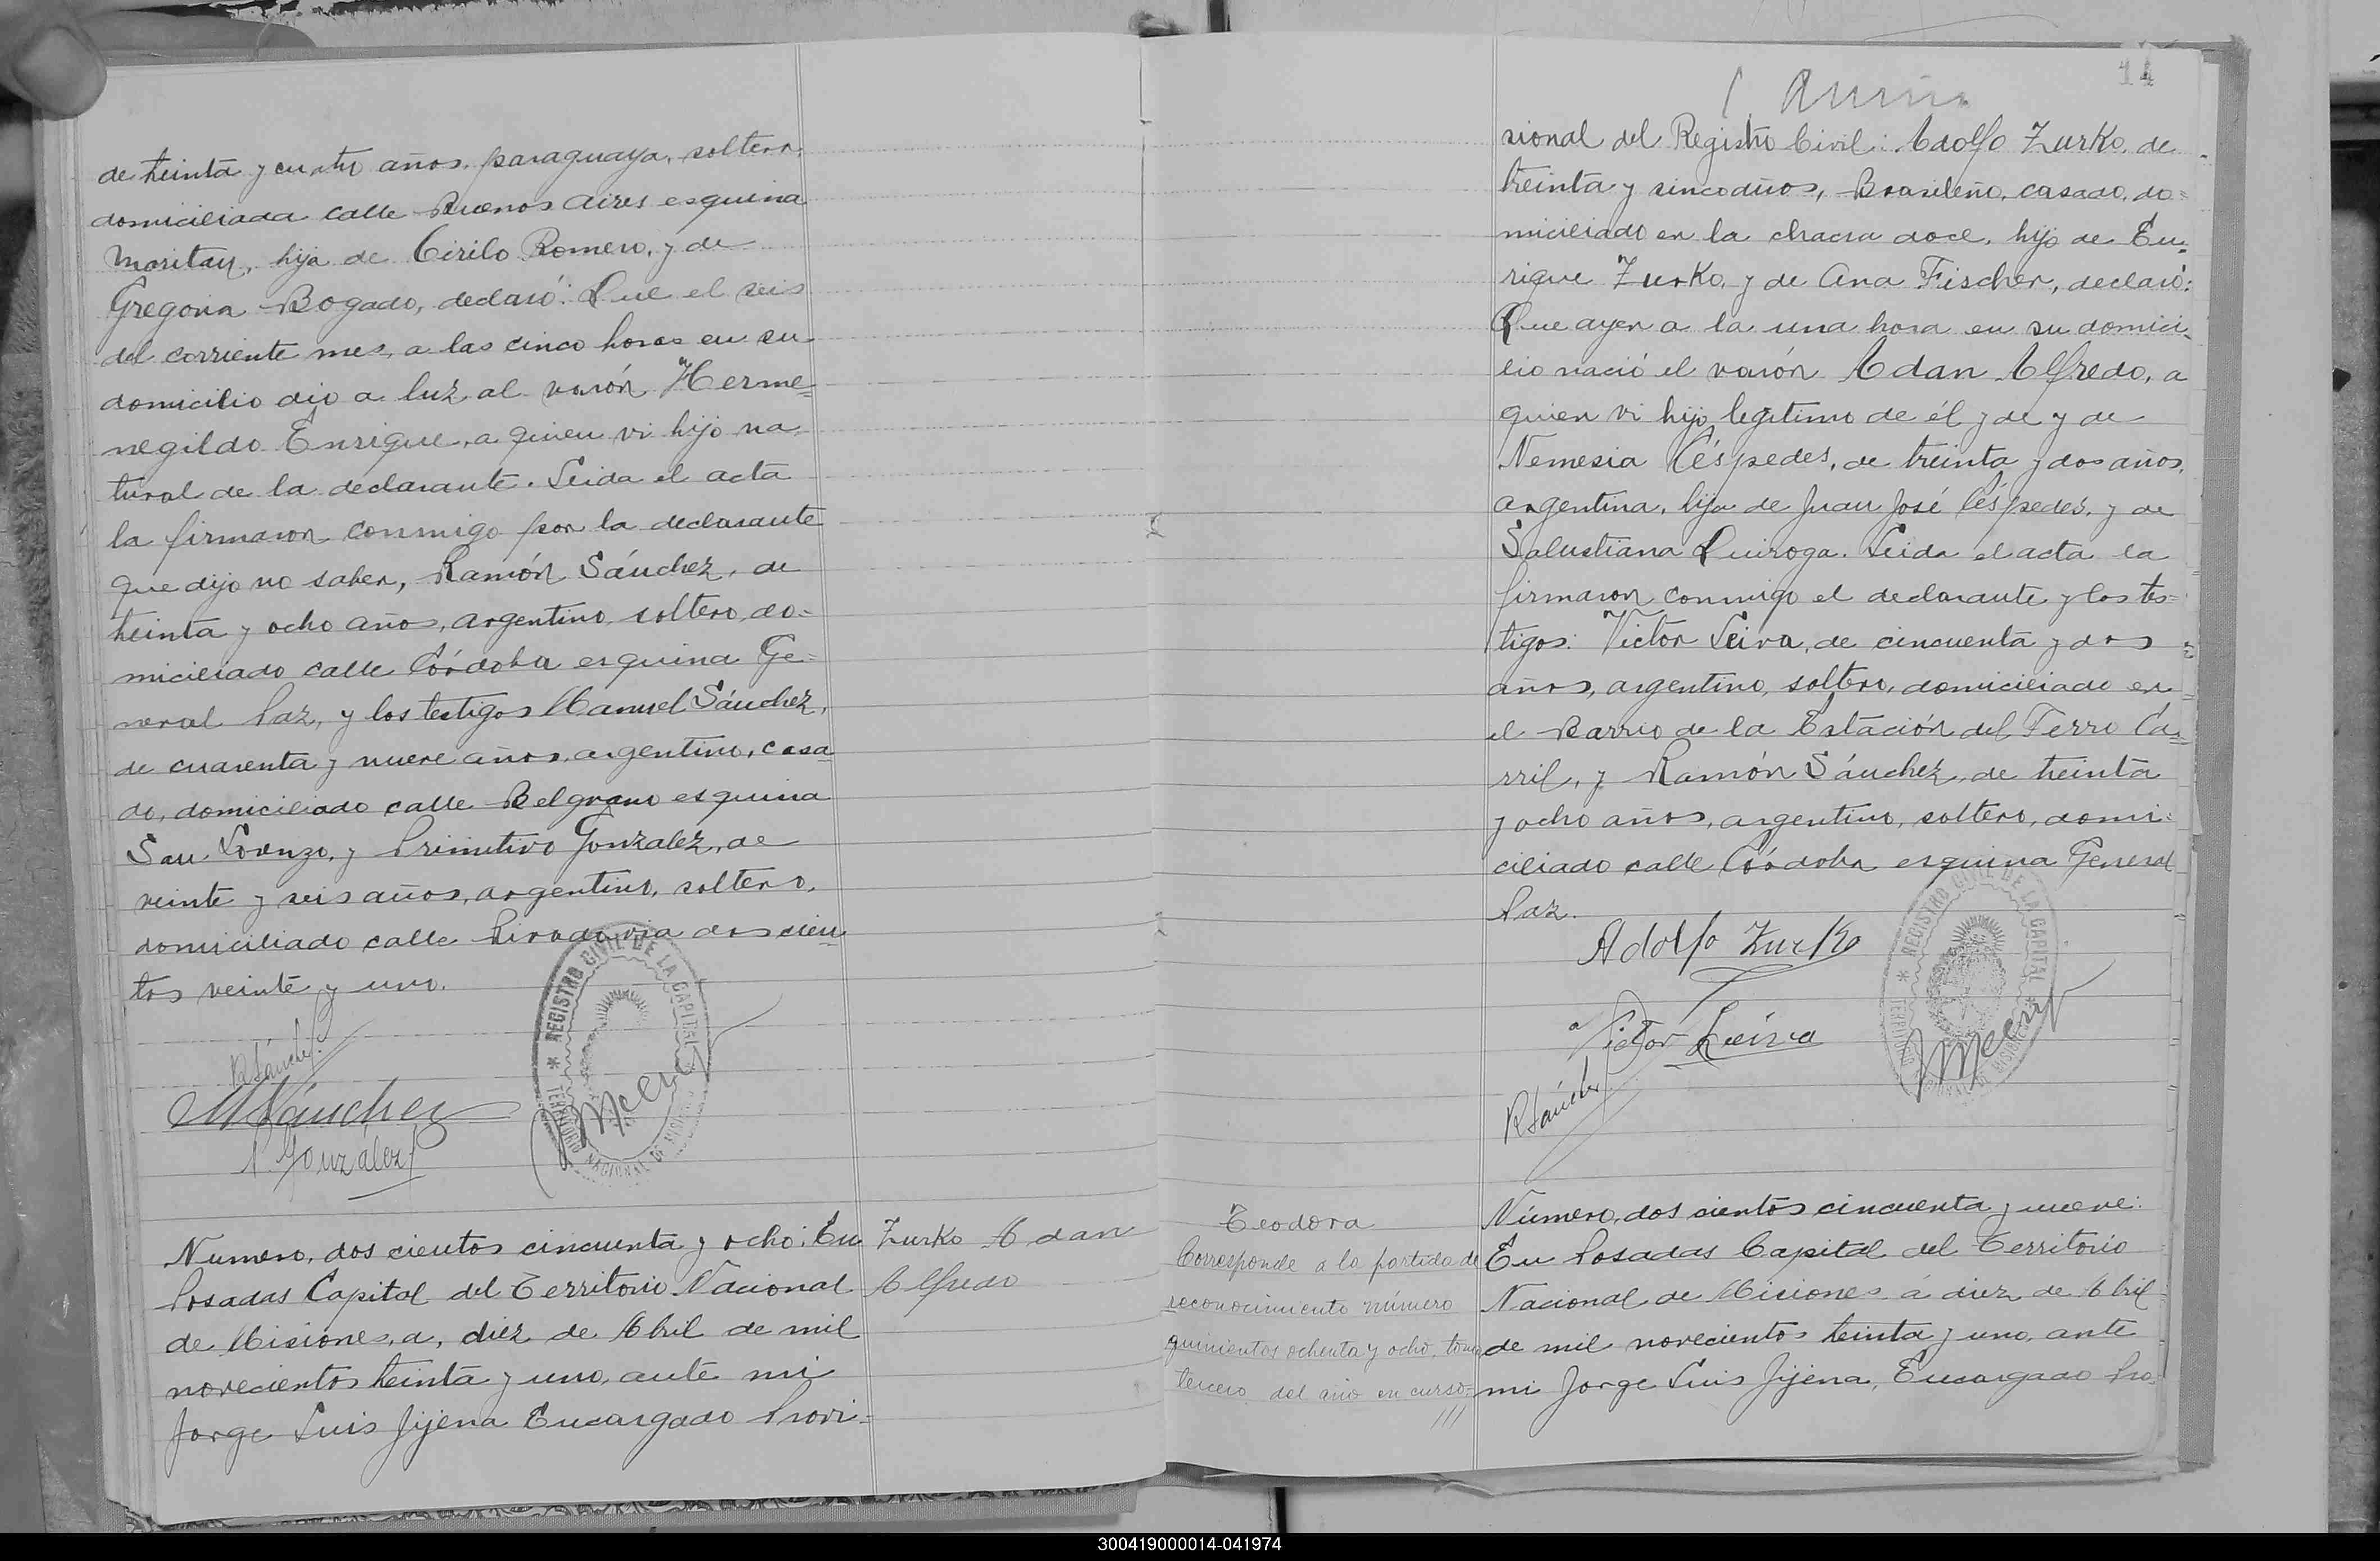 de treinta y cuatro años, paraguaya, soltera,
domiciliada calle Buenos Aires esquina
Moritan, hija de Cirilo Romero, y de
Gregoria Bogado, declaró: Que el seis
del corriente mes, a las cinco horas en su
domicilio dio a luz al varón Herme=
negildo Enrique, a quien vi hijo na
tural de la declarante. Leida el acta
la firmaron conmigo por la declarante
que dijo no saber, Ramón Sánchez, de
treinta y ocho años, argentino, soltero, do=
miciliado calle Córdoba esquina Ge=
neral Paz, y los testigos Manuel Sánchez,
de cuarenta y nueve años, argentino, casa
do, domiciliado calle Belgrano esquina
San Lorenzo, y Primitivo Gonzalez, de
veinte y seis años, argentino, soltero,
domiciliado calle Rivadavia doscien=
tos veinte y uno.
RSánchez
MSánchez
P. Gonzalez
REGISTRO CIVIL DE LA CAPITAL
TERRITORIO NACIONAL DE MISIONES
Numero, dos cientos cincuenta y ocho: En
Posadas Capital del Territorio Nacional
de Misiones, a, diez de Abril de mil
novecientos treinta y uno, ante mi
Jorge Luis Jijena Encargado Provi=
Zurko Adan
Alfredo
14
sional del Registro Civil: Adolfo Zurko, de
treinta y sinco años, Brasileño, casado, do=
miciliado en la chacra doce, hijo de En=
rique Zurko, y de Ana Fischer, declaró:
Que ayer a la una hora en su domici=
lio nació el varón Adan Alfredo, a
quien vi hijo legitimo de él y de y de
Nemesia Céspedes, de treinta y dos años,
argentina, hija de Juan José Céspedes, y de
Salustiana Quiroga. Leida el acta la
firmaron conmigo el declarante y los tes=
tigos: Victor Leiva, de cincuenta y dos
años, argentino, soltero, domiciliado en
el Barrio de la Estación del Ferro Ca=
rril, y Ramón Sánchez, de treinta
y ocho años, argentino, soltero, domi=
ciliado calle Córdoba esquina General
Paz.
Adolfo Zurko
Victor Leiva
RSánchez
REGISTRO CIVIL DE LA CAPITAL
TERRITORIO NACIONAL DE MISIONES
Teodora
Corresponde a la partida de
reconocimiento número
quinientos ochenta y ocho, tomo
tercero del año en curso=
Número, dos cientos cincuenta y nueve:
En Posadas Capital del Territorio
Nacional de Misiones á diez de Abril
de mil novecientos treinta y uno, ante
mi Jorge Luis Jijena, Encargado Pro=
300419000014-041974